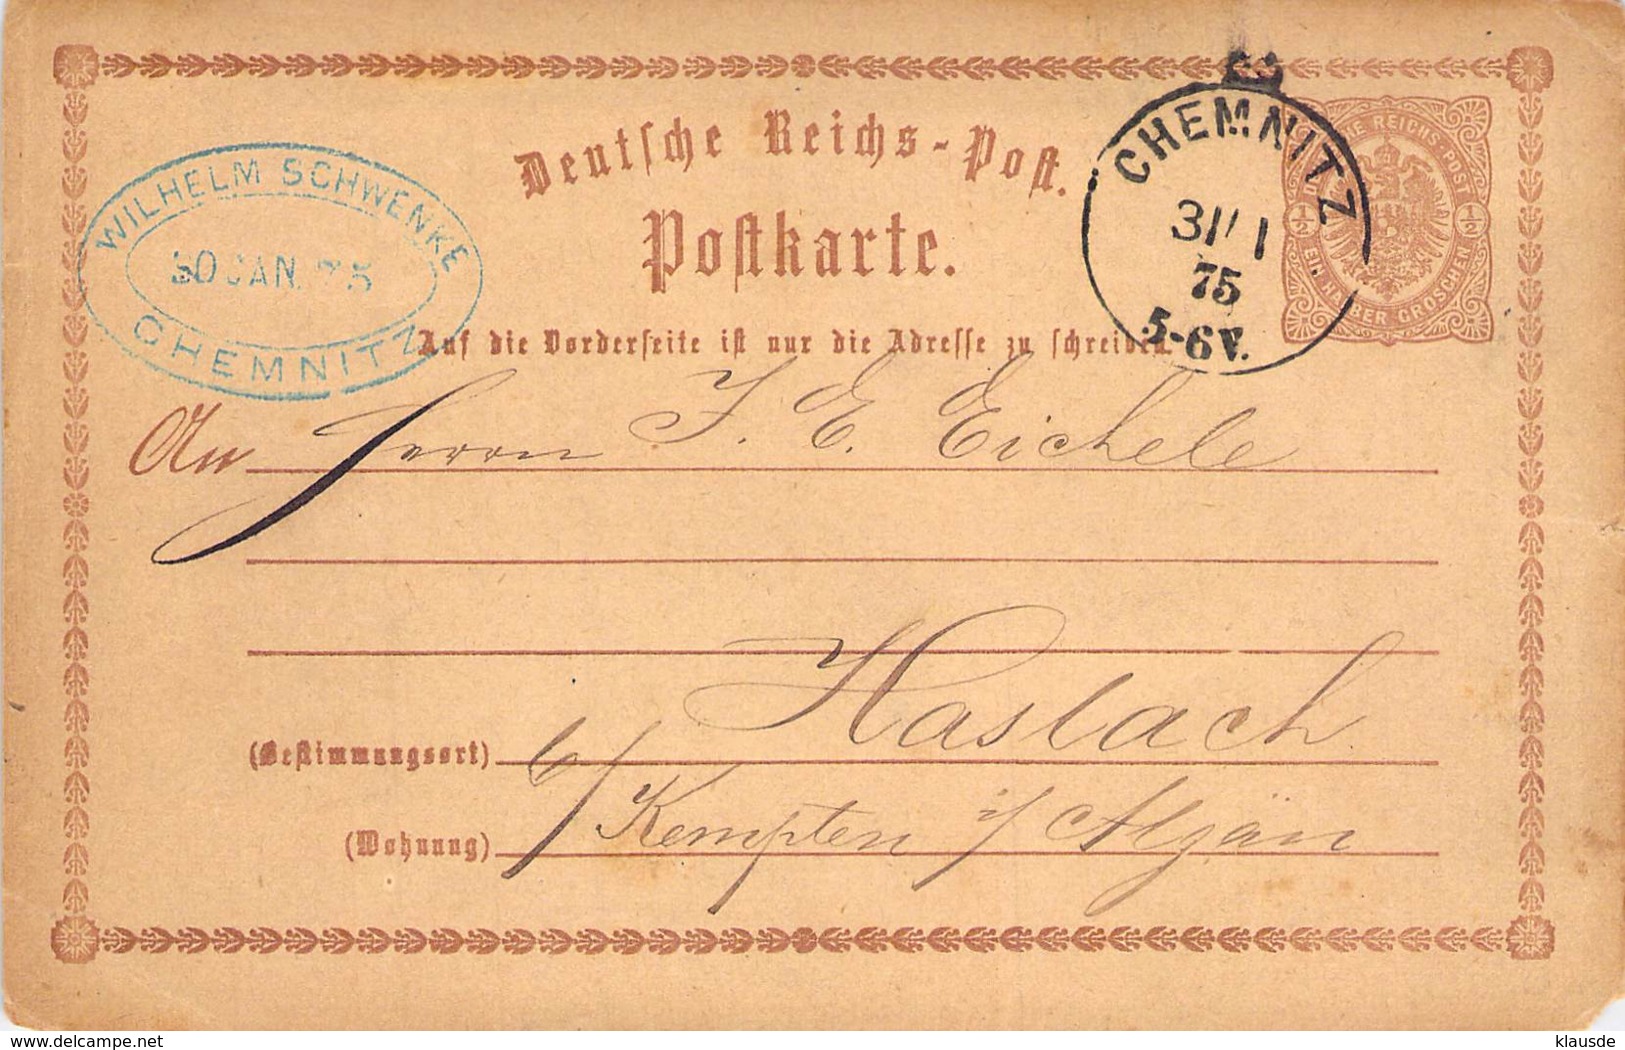 Deutsche Reichs-Post.
Postkarte.
Auf die Vorderseite ist nur die Adresse zu schreiben.
WILHELM SCHWENKE
30 JAN. 75
CHEMNITZ
CHEMNITZ
31/1
75
5-6V.
DEUTSCHE REICHS-POST
1/2 1/2
EIN HALBER GROSCHEN
An Herrn J. E. Eichele
Haslach
(Bestimmungsort)
b/ Kempten i/ Algäu
(Wohnung)
delcampe.net
klausde